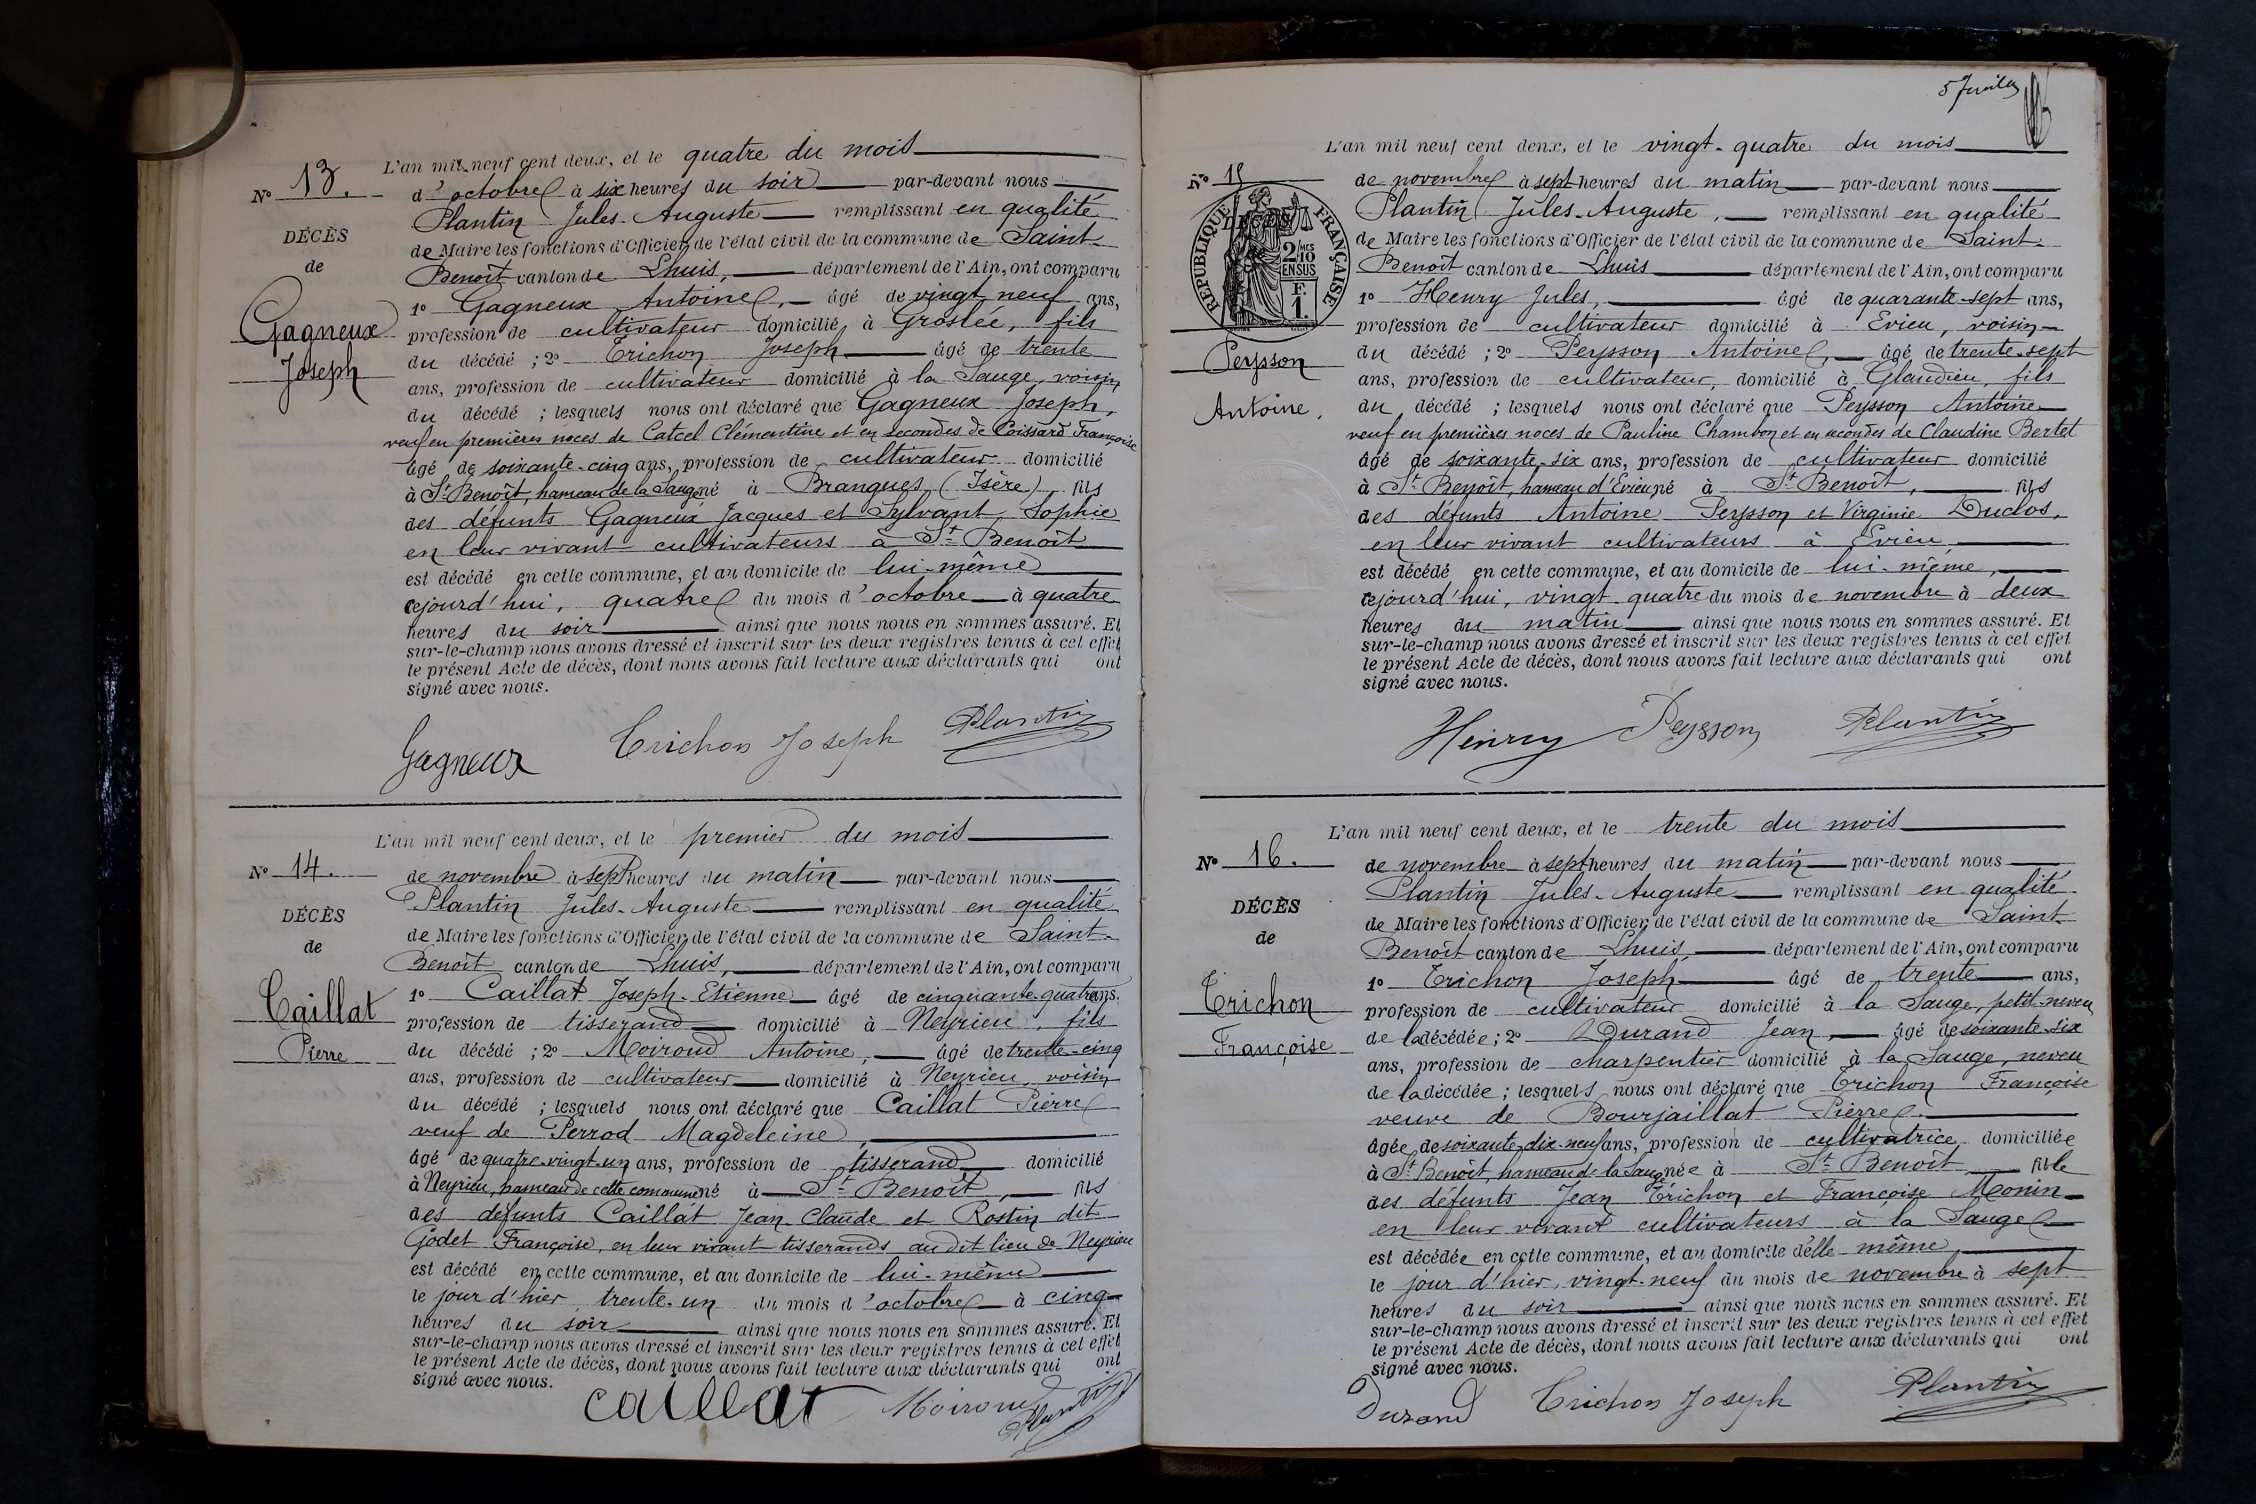 L'an mil neuf cent deux, et le quatre du mois
N° 13.
d'octobre à six heures du soir par-devant nous
Plantin Jules-Auguste remplissant en qualité
DÉCÈS
de Maire les fonctions d'Officier de l'état civil de la commune de Saint-
de
Benoît canton de Lhuis, département de l'Ain, ont comparu
1° Gagneux Antoine, âgé de vingt neuf ans,
Gagneux
profession de cultivateur domicilié à Groslée, fils
Joseph
du décédé ; 2° Trichon Joseph âgé de trente
ans, profession de cultivateur domicilié à la Sauge, voisin
du décédé ; lesquels nous ont déclaré que Gagneux Joseph,
veuf en premières noces de Catcel Clémentine et en secondes de Coissard Françoise
âgé de soixante-cinq ans, profession de cultivateur domicilié
à St Benoît, hameau de la Sauge né à Brangues (Isère) fils
des défunts Gagneux Jacques et Sylvant Sophie
en leur vivant cultivateurs à St Benoît
est décédé en cette commune, et au domicile de lui-même
cejourd'hui, quatre du mois d'octobre à quatre
heures du soir ainsi que nous nous en sommes assuré. Et
sur-le-champ nous avons dressé et inscrit sur les deux registres tenus à cet effet
le présent Acte de décès, dont nous avons fait lecture aux déclarants qui ont
signé avec nous.
Gagneux Trichon Joseph Plantin
L'an mil neuf cent deux, et le premier du mois
N° 14.
de novembre à sept heures du matin par-devant nous
Plantin Jules-Auguste remplissant en qualité
DÉCÈS
de Maire les fonctions d'Officier de l'état civil de la commune de Saint-
de
Benoît canton de Lhuis, département de l'Ain, ont comparu
Caillat
1° Caillat Joseph-Etienne âgé de cinquante-quatre ans,
profession de tisserand domicilié à Neyrieu, fils
Pierre
du décédé ; 2° Moiroud Antoine, âgé de trente-cinq
ans, profession de cultivateur domicilié à Neyrieu, voisin
du décédé ; lesquels nous ont déclaré que Caillat Pierre
veuf de Perrod Magdeleine,
âgé de quatre-vingt-un ans, profession de tisserand domicilié
à Neyrieu, hameau de cette commune né à St Benoît, fils
des défunts Caillat Jean-Claude et Rostin dit
Godet Françoise, en leur vivant tisserands au dit lieu de Neyrieu
est décédé en cette commune, et au domicile de lui-même
le jour d'hier, trente-un du mois d'octobre à cinq
heures du soir ainsi que nous nous en sommes assuré. Et
sur-le-champ nous avons dressé et inscrit sur les deux registres tenus à cet effet
le présent Acte de décès, dont nous avons fait lecture aux déclarants qui ont
signé avec nous.
caillat Moiroud Plantin
L'an mil neuf cent deux, et le vingt-quatre du mois
N° 15
de novembre à sept heures du matin par-devant nous
Plantin Jules-Auguste, remplissant en qualité
DÉCÈS
RÉPUBLIQUE FRANÇAISE
2/10 EN SUS
F. 1.
de Maire les fonctions d'Officier de l'état civil de la commune de Saint-
Benoît canton de Lhuis département de l'Ain, ont comparu
1° Henry Jules, âgé de quarante-sept ans,
profession de cultivateur domicilié à Evieu, voisin
Peysson
du décédé ; 2° Peysson Antoine, âgé de trente-sept
ans, profession de cultivateur, domicilié à Glandieu, fils
Antoine,
du décédé ; lesquels nous ont déclaré que Peysson Antoine
veuf en premières noces de Pauline Chambon et en secondes de Claudine Bertet
âgé de soixante-six ans, profession de cultivateur domicilié
à St Benoît, hameau d'Evieu né à St Benoît, fils
des défunts Antoine Peysson et Virginie Duclos,
en leur vivant cultivateurs à Evieu
est décédé en cette commune, et au domicile de lui-même,
cejourd'hui, vingt-quatre du mois de novembre à deux
heures du matin ainsi que nous nous en sommes assuré. Et
sur-le-champ nous avons dressé et inscrit sur les deux registres tenus à cet effet
le présent Acte de décès, dont nous avons fait lecture aux déclarants qui ont
signé avec nous.
Henry Peysson Plantin
L'an mil neuf cent deux, et le trente du mois
N° 16.
de novembre à sept heures du matin par-devant nous
Plantin Jules-Auguste remplissant en qualité
DÉCÈS
de Maire les fonctions d'Officier de l'état civil de la commune de Saint
de
Benoît canton de Lhuis, département de l'Ain, ont comparu
1° Trichon Joseph âgé de trente ans,
Trichon
profession de cultivateur domicilié à la Sauge, petit-neveu
Françoise
de la décédée ; 2° Durand Jean, âgé de soixante-six
ans, profession de charpentier domicilié à la Sauge, neveu
de la décédée ; lesquels nous ont déclaré que Trichon Françoise
veuve de Bourjaillat Pierre.
âgée de soixante-dix-neuf ans, profession de cultivatrice domiciliée
à St Benoît, hameau de la Sauge née à St Benoît fille
des défunts Jean Trichon et Françoise Monin
en leur vivant cultivateurs à la Sauge
est décédée en cette commune, et au domicile d'elle-même,
le jour d'hier, vingt-neuf du mois de novembre à sept
heures du soir ainsi que nous nous en sommes assuré. Et
sur-le-champ nous avons dressé et inscrit sur les deux registres tenus à cet effet
le présent Acte de décès, dont nous avons fait lecture aux déclarants qui ont
signé avec nous.
Durand Trichon Joseph Plantin